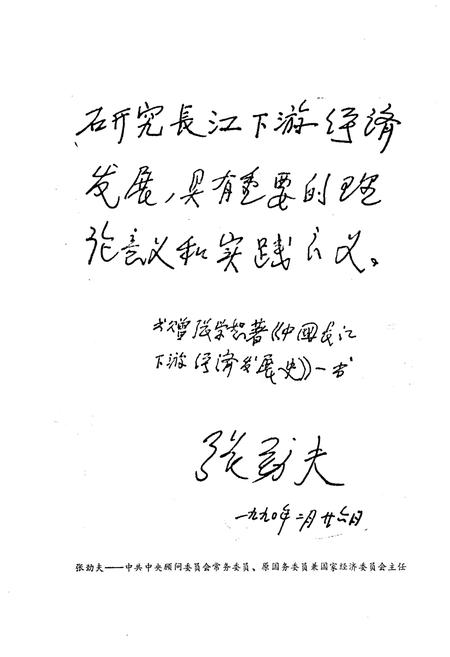 研究長江下游经济
发展，具有重要的理
论意义和实践意义。
书赠张学恕著《中国长江
下游经济发展史》一书
张劲夫
一九九〇年二月廿六日
张劲夫——中共中央顾问委员会常务委员、原国务委员兼国家经济委员会主任